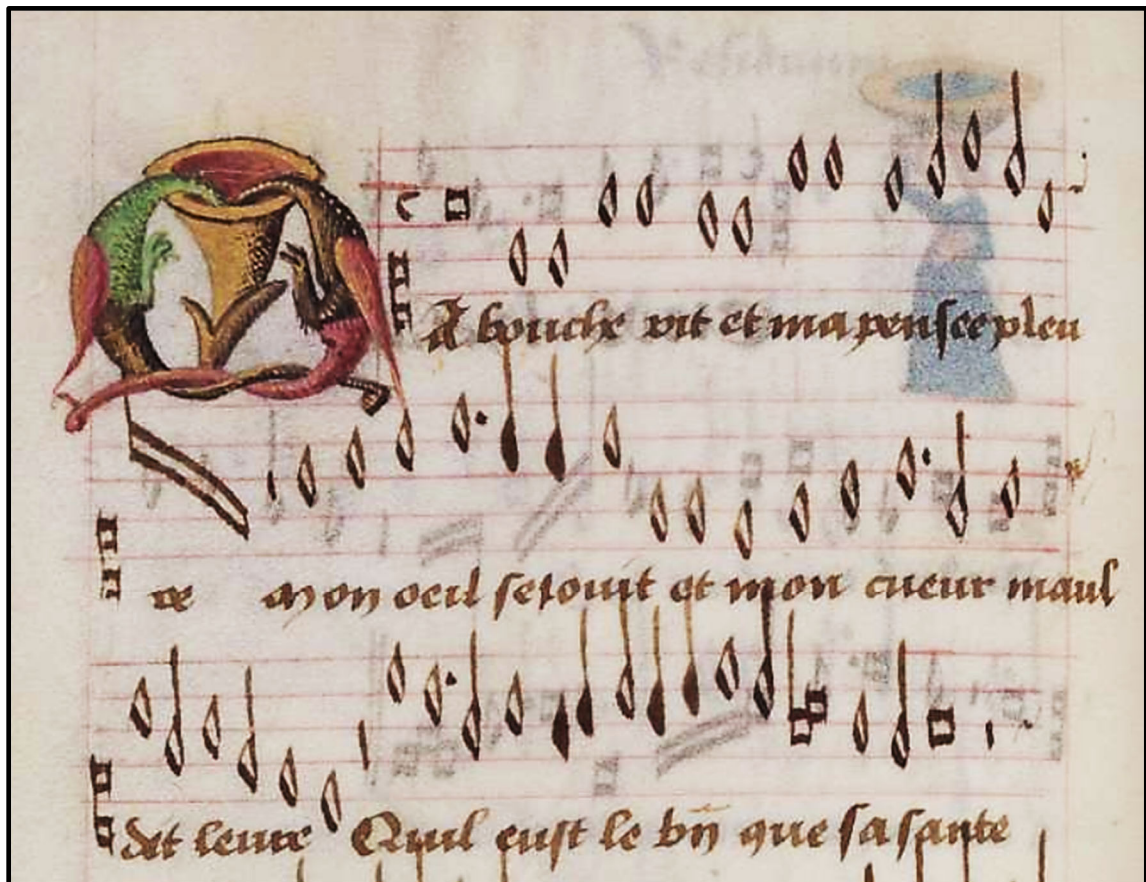 Ma bouche rit et ma pensee pleu
re Mon oeil seiouit et mon cueur maul
dit leure Quil eust le bn̄ que sa sante